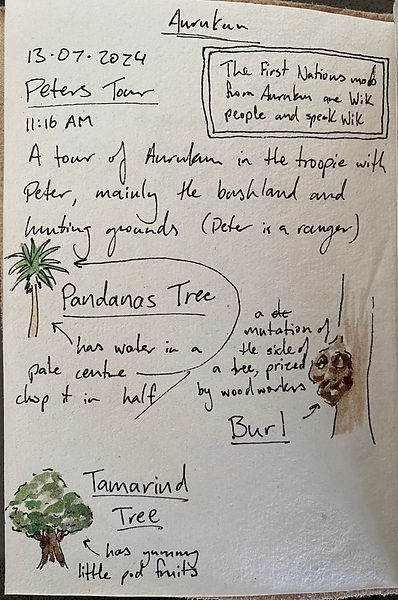 Aurukun
13.07.2024
Peters Tour
11:16 AM
The First Nations mob
from Aurukun are Wik
people and speak Wik
A tour of Aurukun in the troopie with
Peter, mainly the bushland and
hunting grounds (Peter is a ranger)
Pandanas Tree
has water in a
pale centre
chop it in half
a
mutation of
the side of
a tree, prized
by woodworkers
Burl
Tamarind
Tree
has yummy
little pod fruits